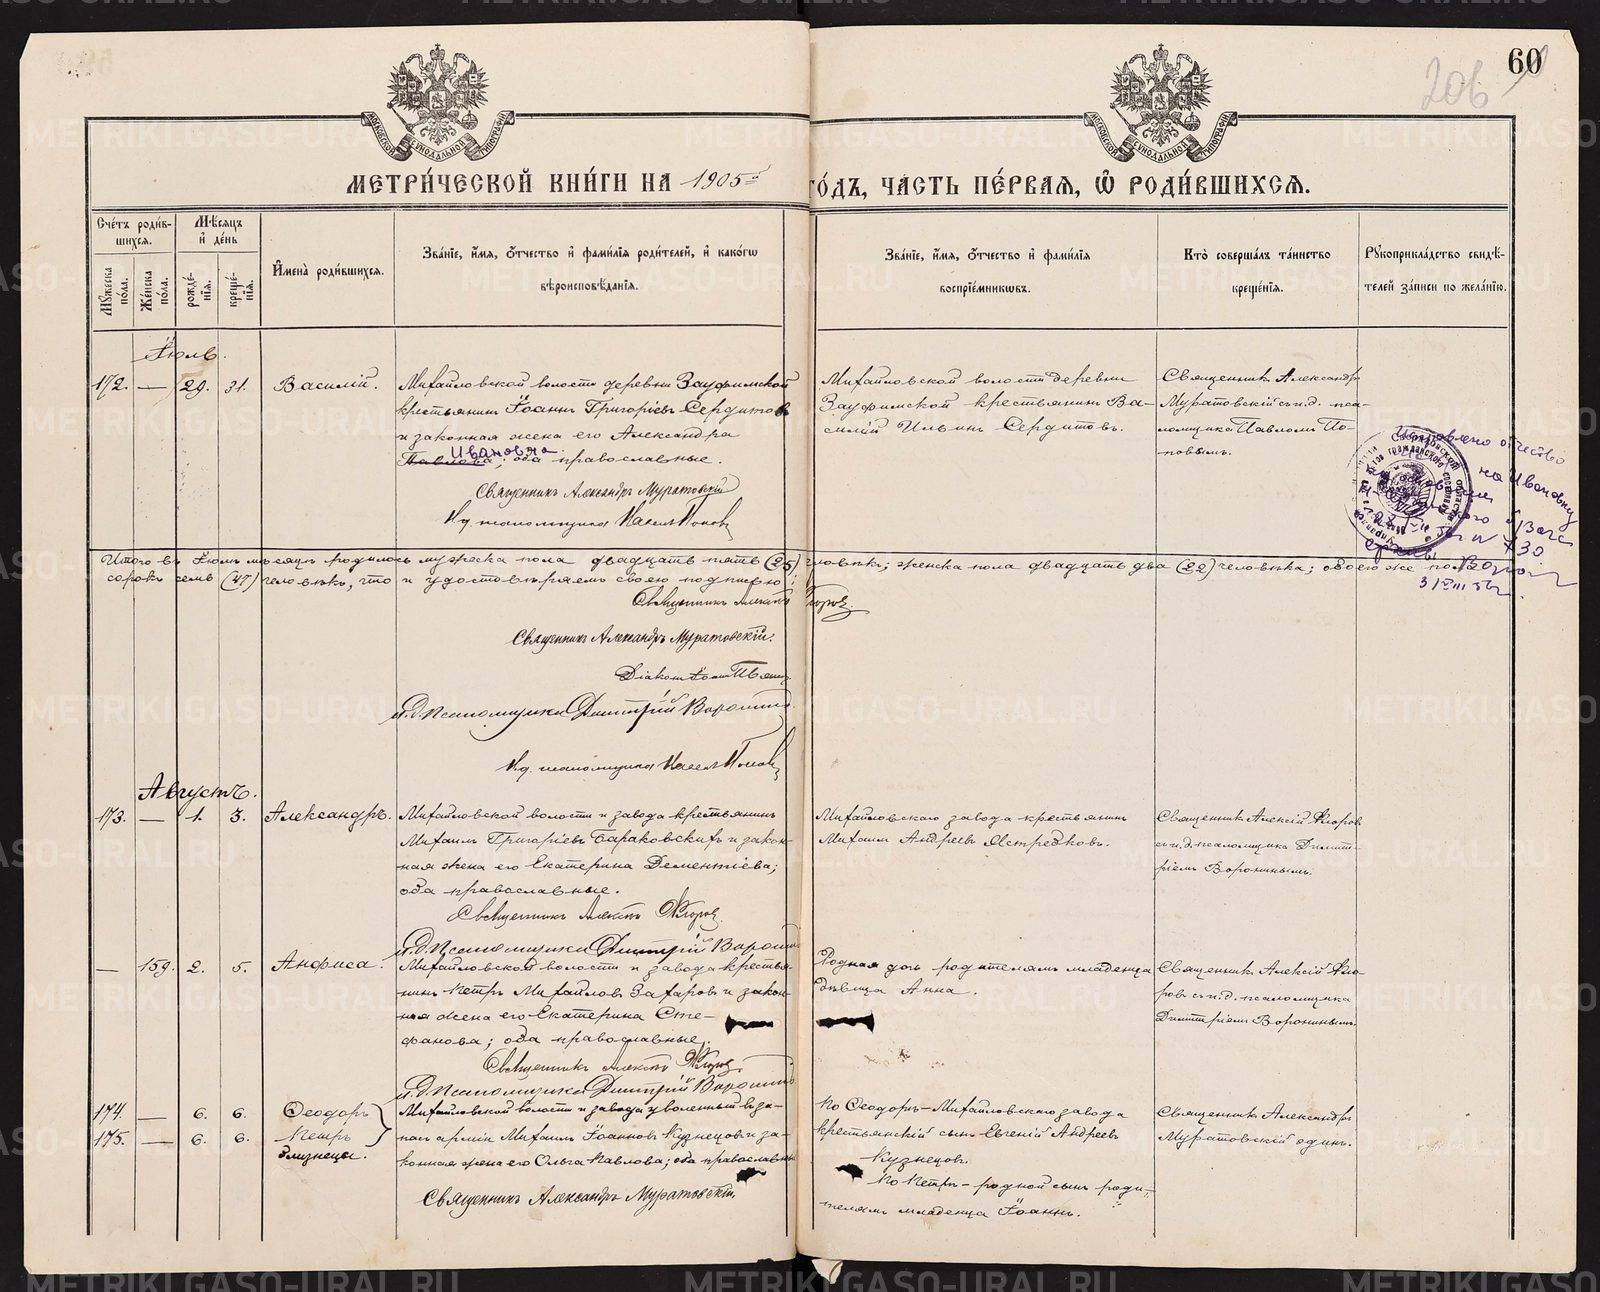 60
206
МОСКОВСКОЙ СѴНОДАЛЬНОЙ ТИПОГРАФІИ
МОСКОВСКОЙ СѴНОДАЛЬНОЙ ТИПОГРАФІИ
МЕТРИ́ЧЕСКОЙ КНИ́ГИ НА 1905й ГО́ДЪ, ЧА́СТЬ ПЕ́РВАЯ, Ѽ РОДИ́ВШИХСЯ.
Сче́тъ роди́вшихся.
Мꙋ́жеска пола.
Же́нска пола.
Мѣ́сяцъ и де́нь
рожде́нїя.
креще́нїя.
И҆мена̀ роди́вшихся.
Зва́нїе, и҆́мя, ѻ҆́тчество и҆ фами́лїя роди́телей, и҆ како́гѡ
вѣроисповѣ́данїя.
Зва́нїе, и҆́мя, ѻ҆́тчество и҆ фами́лїя
воспрїе́мникѡвъ.
Кто̀ соверша́лъ та́инство
креще́нїя.
Рꙋкоприкла́дство свидѣ́-
телей за́писи по жела́нїю.
Іюль.
172. — 29. 31. Василій.
Михайловской волости деревни Зауфимской
крестьянинъ Іоаннъ Григоріевъ Сердитовъ
и законная жена его Александра
Ивановна
Павлова; оба православные.
Священникъ Александръ Муратовскій
И.д. псаломщика Павелъ Поповъ
Михайловской волости деревни
Зауфимской крестьянинъ Ва-
силій Ильинъ Сердитовъ.
Священникъ Александръ
Муратовскій съ и.д. пса-
ломщика Павломъ По-
повымъ.
Исправлено отчество
на Ивановну
3/VIII 56г.
Итого въ Іюлѣ мѣсяцѣ родилось мужеска пола двадцать пять (25) человѣкъ; женска пола двадцать два (22) человѣка; обоего же пола
сорокъ семь (47) человѣкъ, что и удостовѣряемъ своею подписью:
Священникъ Алексѣй Флоровъ.
Священникъ Александръ Муратовскій.
Діаконъ Іоаннъ
и.д. псаломщика Димитрій Воронинъ
И.д. псаломщика Павелъ Поповъ
Августъ.
173. — 1. 3. Александръ.
Михайловской волости и завода крестьянинъ
Михаилъ Григоріевъ Бараковскихъ и закон-
ная жена его Екатерина Дементіева;
оба православные.
Священникъ Алексѣй Флоровъ.
и.д. псаломщика Димитрій Воронинъ
Михайловскаго завода крестьянинъ
Михаилъ Андреевъ Ястребковъ.
Священникъ Алексій Флоровъ
съ и.д. псаломщика Димит-
ріемъ Воронинымъ.
— 159. 2. 5. Анфиса.
Михайловской волости и завода крестья-
нинъ Петръ Михайловъ Захаровъ и закон-
ная жена его Екатерина Сте-
фанова; оба православные.
Священникъ Алексѣй Флоровъ.
и.д. псаломщика Димитрій Воронинъ
Родная дочь родителямъ младенца
дѣвица Анна.
Священникъ Алексій Фло-
ровъ съ и.д. псаломщика
Димитріемъ Воронинымъ.
174. — 6. 6. Ѳеодоръ
175. — 6. 6. Петръ
близнецы.
Михайловской волости и завода уволенный въ за-
пасъ арміи Михаилъ Іоанновъ Кузнецовъ и за-
конная жена его Ольга Павлова; оба православные
Священникъ Александръ Муратовскій.
По Ѳеодорѣ – Михайловскаго завода
крестьянскій сынъ Евгеній Андреевъ
Кузнецовъ.
По Петрѣ – родной сынъ роди-
телямъ младенца Іоаннъ.
Священникъ Александръ
Муратовскій одинъ.
METRIKI.GASO-URAL.RU